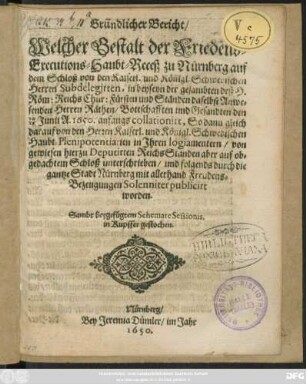 Gründlicher Bericht/
V c
4575
Welcher Gestalt der Friedens-
Executions-Haubt-Receß zu Nürnberg auf
dem Schloß von den Kaiserl. und Königl. Schwedischen
Herren Subdelegirten, in beysein der gesambten deß H.
Röm: Reichs Chur: Fürsten und Ständen daselbst Anwe-
senden Herren Räthen/ Bottschafften und Gesandten den
Junii A. 1650. anfangs collationirt, So dann gleich
darauf von den Herren Kaiserl. und Königl. Schwedischen
Haubt-Plenipotentiarien in Ihren logiamentern/ von
gewiesen hierzu Deputirten Reichs Ständen aber auf ob-
gedachtem Schloß unterschrieben/ und folgends durch die
gantze Stadt Nürnberg mit allerhand Freudens-
Bezeugungen Solenniter publicirt
worden.
Sambt beygefügtem Schemate Sessionis,
in Kupffer gestochen.
Nürnberg/
Bey Jeremia Dümler/ im Jahr
1650.